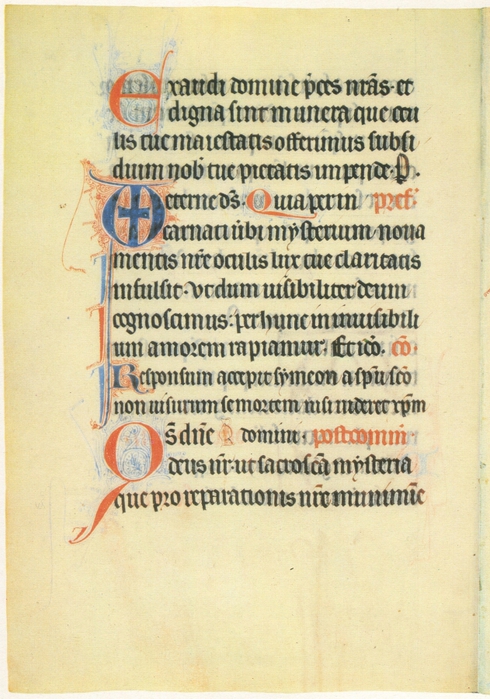 Exaudi domine p̄ces nr̄as· et
digna sint munera que ocu
lis tue maiestatis offerimus subsi
dium nob̄ tue pietatis impende· P̱.
eterne d̄s. Quia per in pref̄
carnati ūbi mysterium noua
mentis nr̄e oculis lux tue claritatis
infulsit· Vt dum uisibiliter deum
cognoscimus· per hunc in inuisibili
um amorem rapiamur· Et iđo· c̄o·
Responsum accepit symeon a sp̄u sc̄o
non uisurum se mortem nisi uideret xp̄m
dn̄e domini· postcomm̄
Qs̄ deus nr̄· ut sacrosc̄a mysteria
que pro reparationis nr̄e munimīe